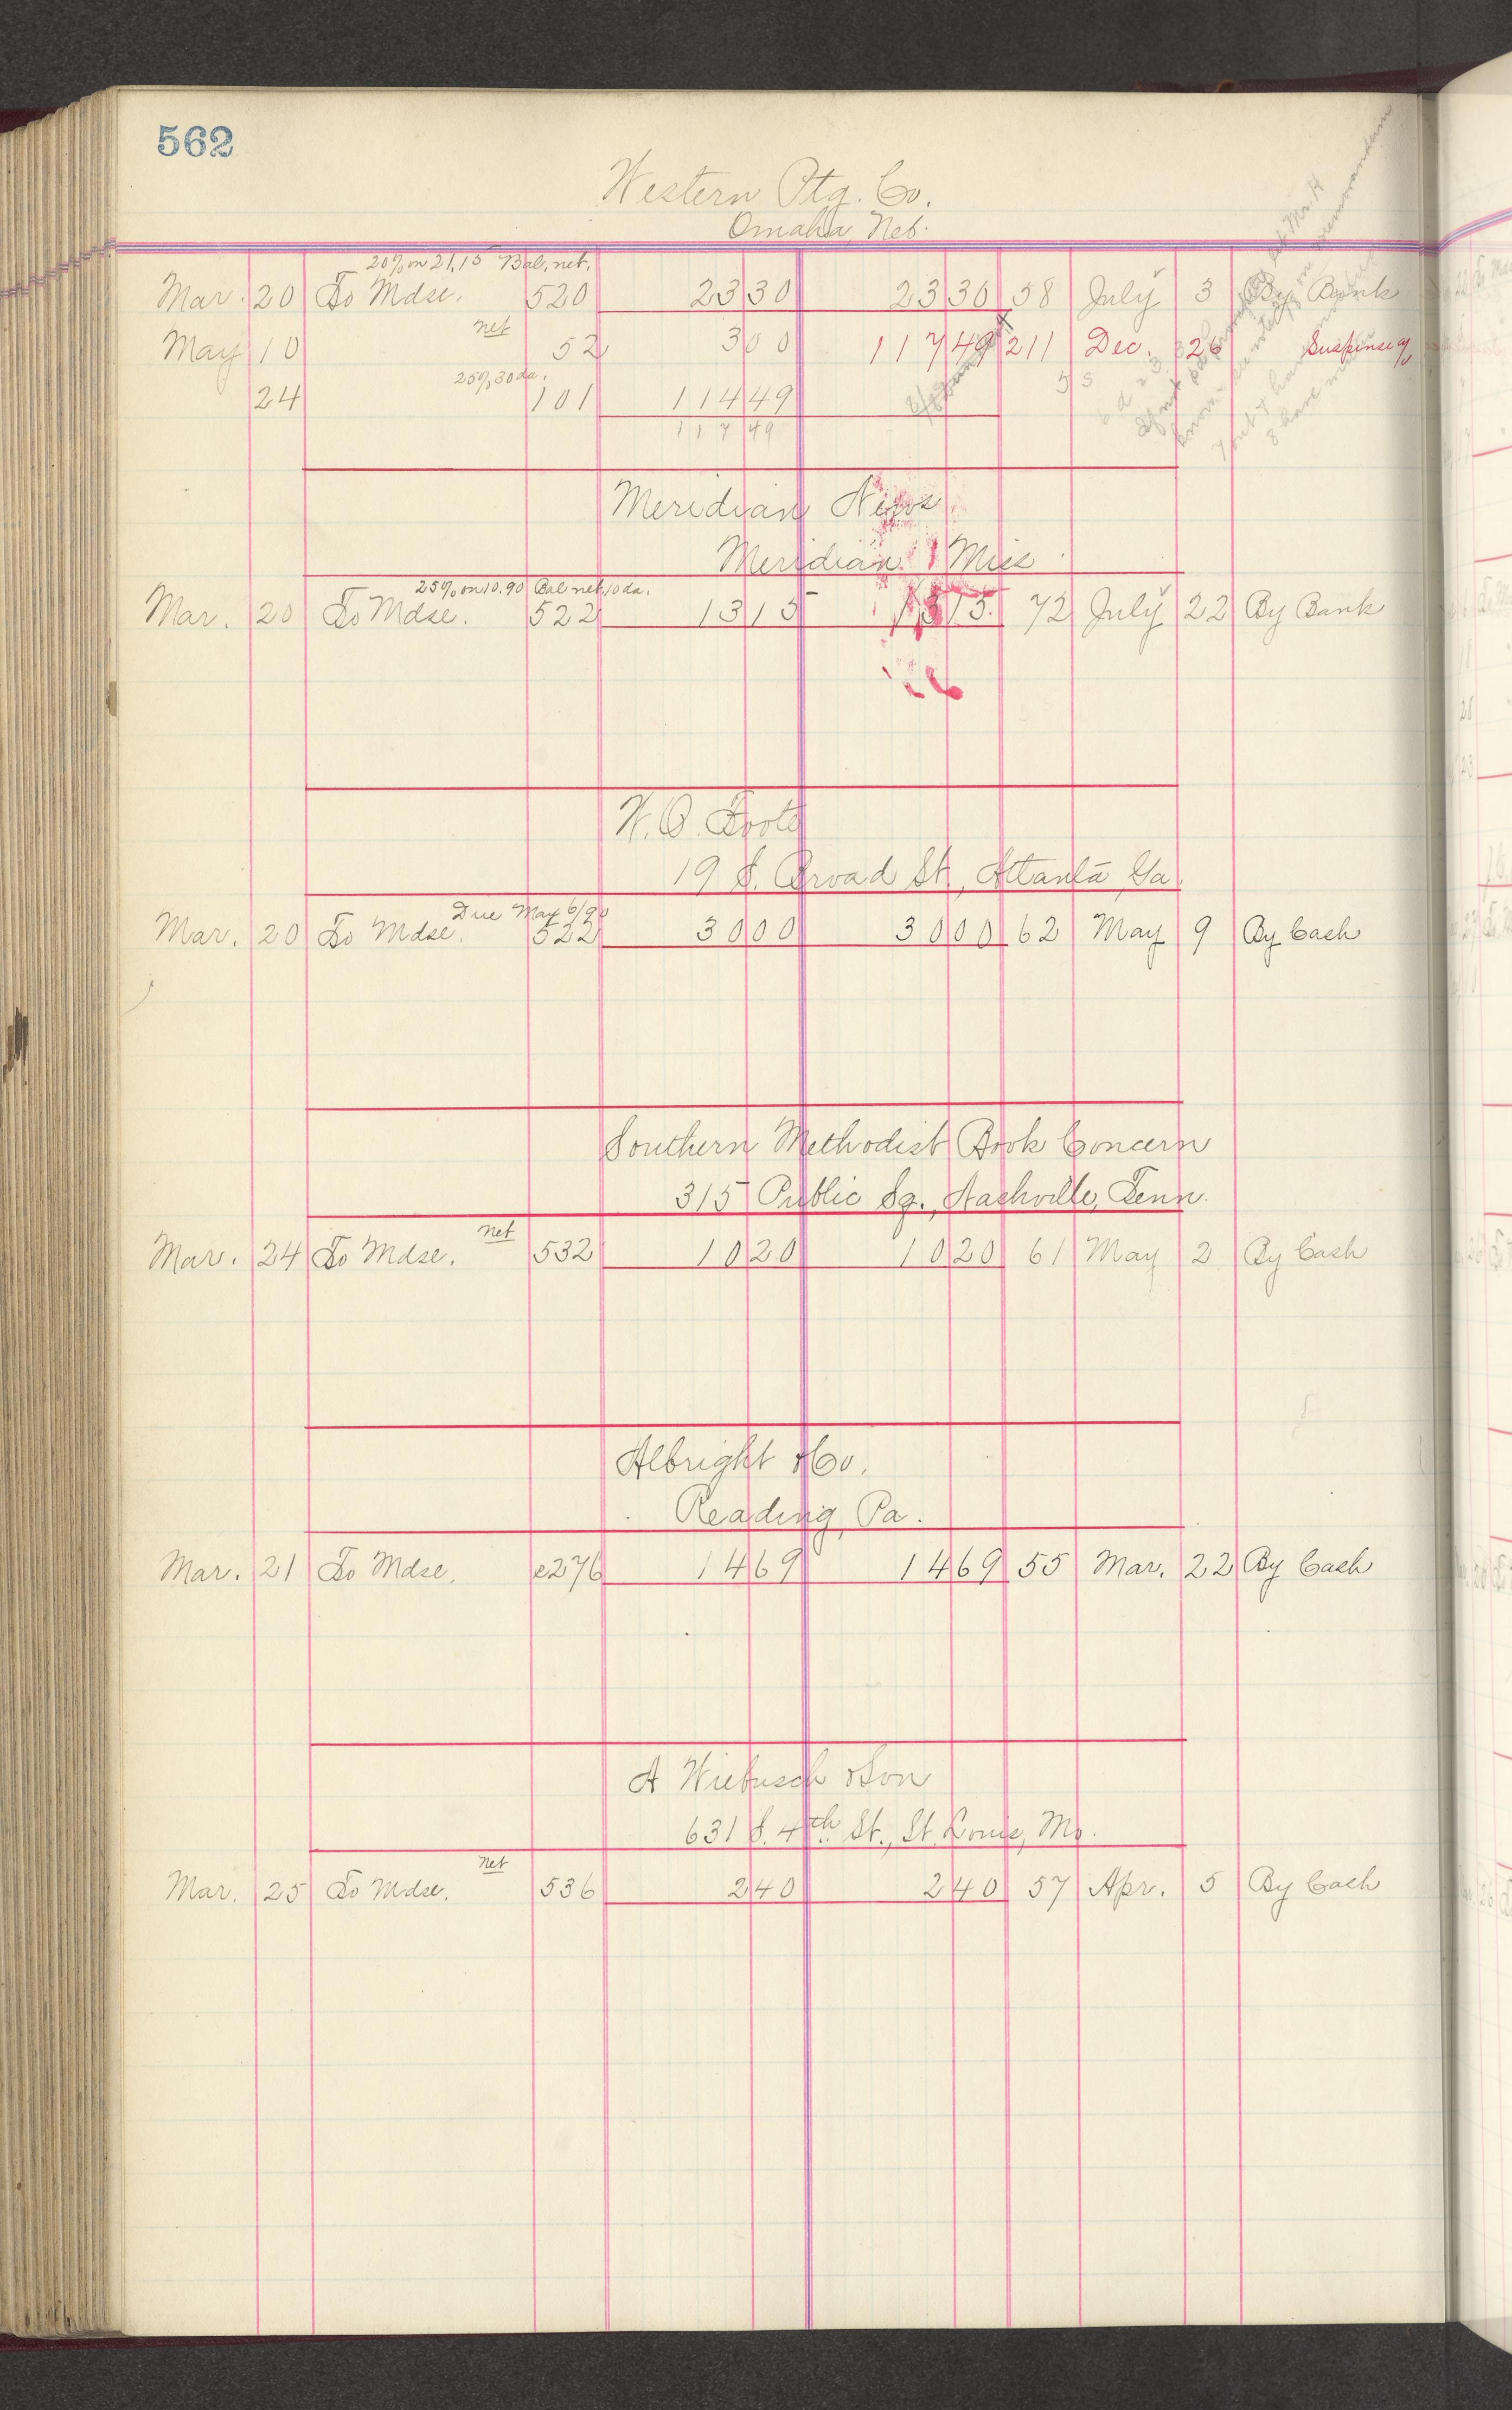 562
Western Ptg. Co.
Omaha, Neb.
20% on 21.15 Bal. net.
Mar. 20 To Mdse. 520 23 30 23 30 58 July 3 By Bank
net
May 10 52 3 00 117 49 211 Dec. 26 Suspense
25% 30 da.
24 101 114 49
117 49
Meridian News
Meridian Miss
25% on 10.90 Bal net 10 da.
Mar. 20 To Mdse. 522 13 15 13 15. 72 July 22 By Bank
19 S. Broad St., Atlanta Ga.
Due May 6/90
Mar. 20 To Mdse. 522 30 00 30 00 62 May 9 By Cash
Southern Methodist Book Concern
315 Public Sq., Nashville, Tenn.
net
Mar. 24 To Mdse. 532 10 20 10 20 61 May 2 By Cash
Albright & Co.
Reading, Pa.
Mar. 21 To Mdse. c276 14 69 14 69 55 Mar. 22 By Cash
A Wiebusch & Son
631 S. 4th St., St. Louis, Mo.
net
Mar. 25 To Mdse. 536 2 40 2 40 57 Apr. 5 By Cash